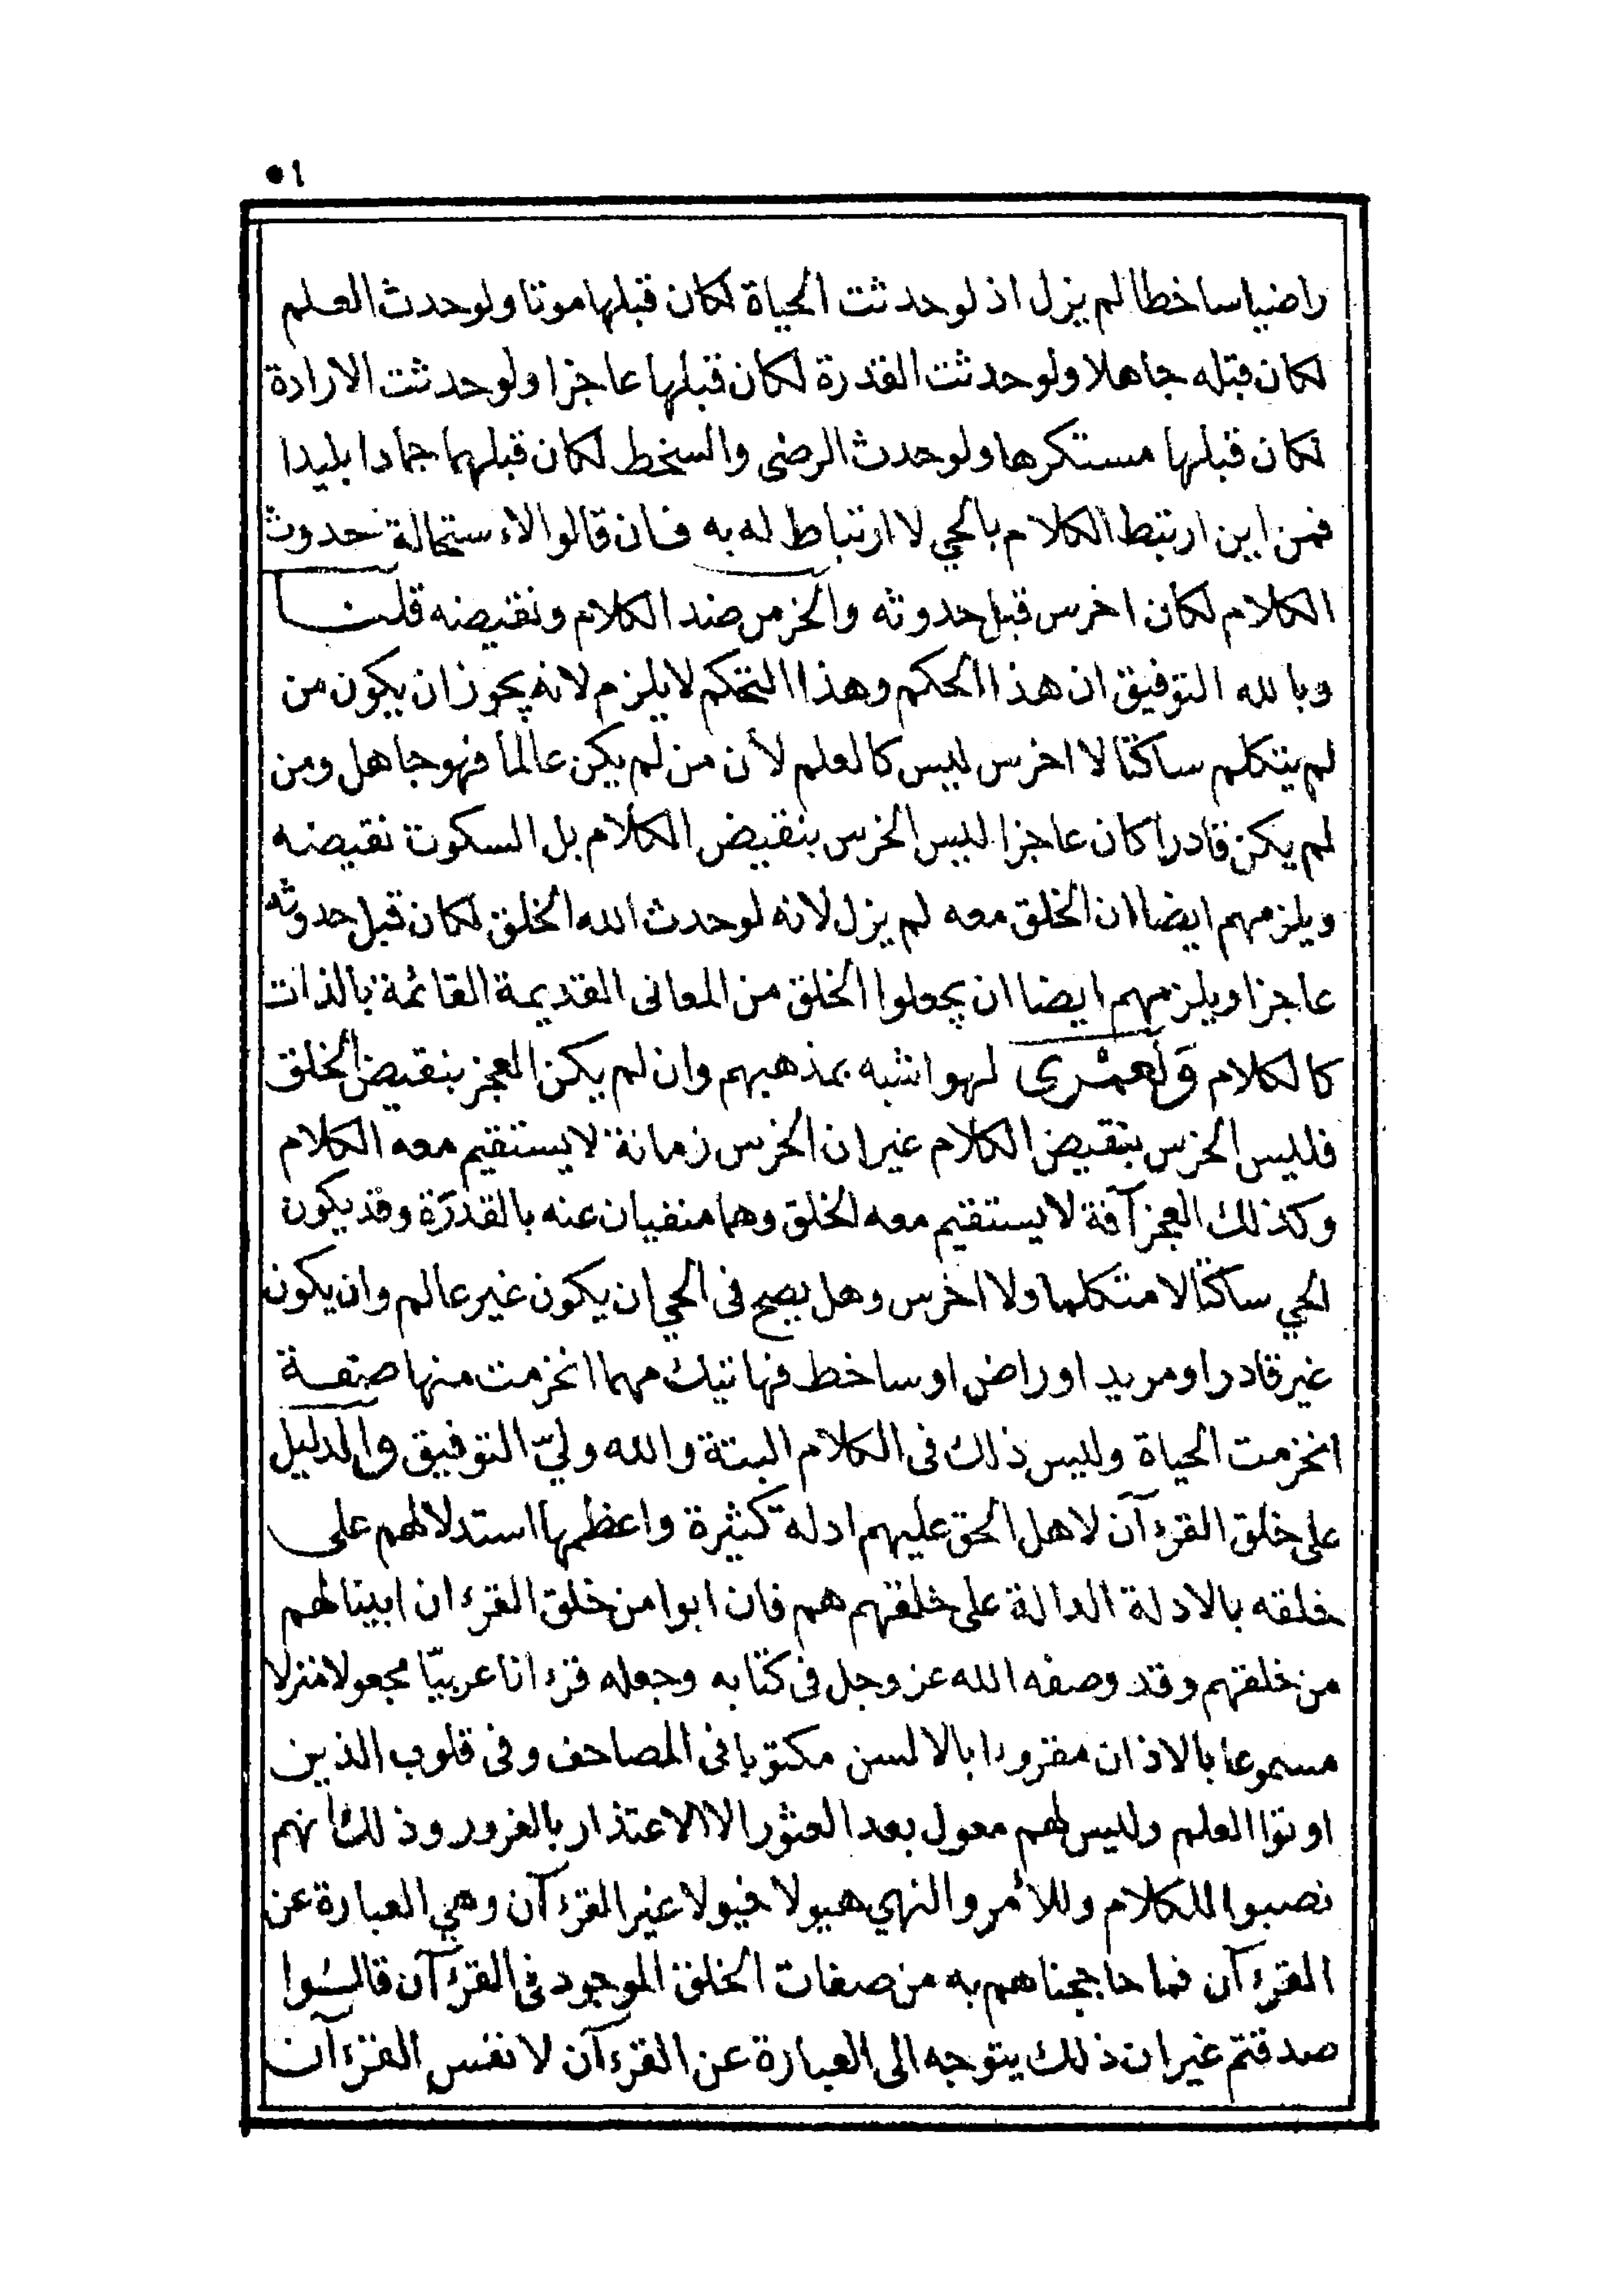 ٥١
راضيا ساخطا لم يزل اذ لو حدثت الحياة لكان قبلها موتا ولو حدث العلم
لكان قبله جاهلا ولو حدثت القدرة لكان قبلها عاجزا ولو حدثت الارادة
لكان قبلها مستكرها ولو حدث الرضى والسخط لكان قبلهما جمادا بليدا
فمن اين ارتبط الكلام بالحي لا ارتباط له به فان قالوا لاستحالة حدوث
الكلام لكان اخرس قبل حدوثه والخرس ضد الكلام ونقيضه قلنا
وبالله التوفيق ان هذا الحكم وهذا التحكم لا يلزم لانه يجوز ان يكون من
لم يتكلم ساكتا لا اخرس ليس كالعلم لأن من لم يكن عالما فهو جاهل ومن
لم يكن قادرا كان عاجزا ليس الخرس بنقيض الكلام بل السكوت نقيضه
ويلزمهم ايضا ان الخلق معه لم يزل لانه لو حدث الله الخلق لكان قبل حدوثه
عاجزا ويلزمهم ايضا ان يجعلوا الخلق من المعانى القديمة القائمة بالذات
كالكلام وَلَعمْرى لهو اشبه بمذهبهم وان لم يكن العجز بنقيض الخلق
فليس الخرس بنقيض الكلام غير ان الخرس زمانة لا يستقيم معه الكلام
وكذلك العجز آفة لا يستقيم معه الخلق وهما منفيان عنه بالقدرَة وقد يكون
الحي ساكتا لا متكلما ولا اخرس وهل يصح فى الحي ان يكون غير عالم وان يكون
غير قادر او مريد او راض او ساخط فهاتيك مهما انخرمت منها صفة
انخرمت الحياة وليس ذلك فى الكلام البتة والله وليّ التوفيق والدليل
على خلق القرءآن لاهل الحق عليهم ادلة كثيرة واعظمها استدلالهم على
خلقه بالادلة الدالة على خلقهم هم فان ابوا من خلق القرءان ابينا لهم
من خلقهم وقد وصفه الله عز وجل فى كتابه وجعله قرءانا عربيّا مجعولا منزلا
مسموعا بالاذان مقروءا بالالسن مكتوبا فى المصاحف وفى قلوب الذين
اوتوا العلم وليس لهم معول بعد العثور الا الاعتذار بالغرور وذلك أنهم
نصبوا للكلام وللأمر والنهي هيولا فيولا غير القرءآن وهي العبارة عن
القرءآن فما حاججناهم به من صفات الخلق الموجود فى القرءآن قالوا
صدقتم غير ان ذلك يتوجه الى العبارة عن القرءآن لا نفس القرءآن